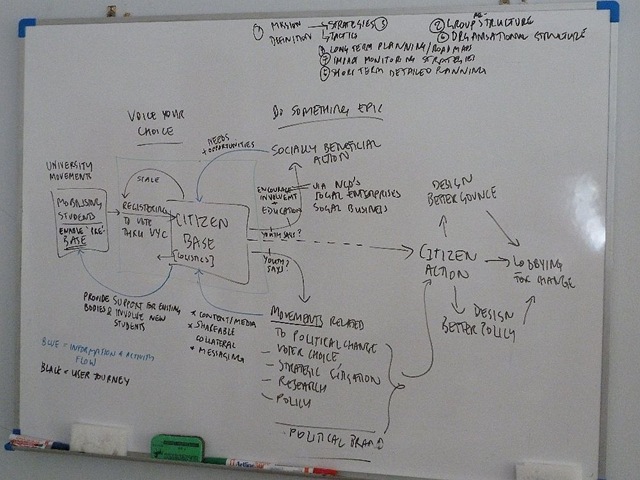 ① MISSION DEFINITION → STRATEGIES ③
↳ TACTICS
② RE-GROUP STRUCTURE
⑥ ORGANISATIONAL STRUCTURE
LONG TERM PLANNING/ROADMAPS
⑦ IMPACT MONITORING STRATEGIES
SHORT TERM DETAILED PLANNING
VOICE YOUR
CHOICE
DO SOMETHING EPIC
NEEDS
+ OPPORTUNITIES
SOCIALLY BENEFICIAL
ACTION
UNIVERSITY
MOVEMENTS
MOBILISING
STUDENTS
ENABLE
BASE
SCALE
REGISTERING
TO VOTE
THRU VYC
CITIZEN
BASE
[LOGISTICS]
ENCOURAGE
INVOLVEMENT
+
EDUCATION
VIA NGO'S
SOCIAL ENTERPRISES
SOCIAL BUSINESS
YOUTH SAYS?
YOUTH?
SAYS
DESIGN
BETTER GOVNCE
CITIZEN
ACTION
LOBBYING
FOR CHANGE
DESIGN
BETTER POLICY
PROVIDE SUPPORT FOR EXISTING
BODIES & INVOLVE NEW
STUDENTS
* CONTENT/MEDIA
* SHAREABLE
COLLATERAL
* MESSAGING
MOVEMENTS RELATED
TO POLITICAL CHANGE
- VOTER CHOICE
- STRATEGIC LITIGATION
- RESEARCH
- POLICY
POLITICAL BRAND
BLUE = INFORMATION & ACTIVITY
FLOW
BLACK = USER JOURNEY
Artline